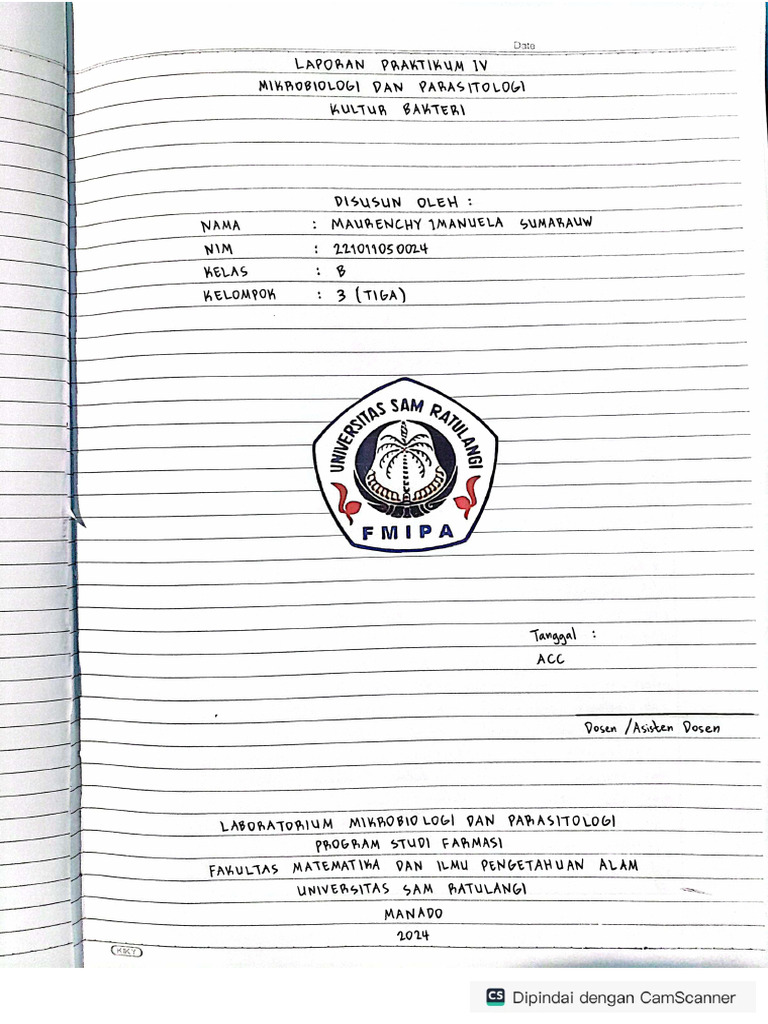 Date
LAPORAN PRAKTIKUM IV
MIKROBIOLOGI DAN PARASITOLOGI
KULTUR BAKTERI
DISUSUN OLEH :
NAMA : MAURENCHY IMANUELA SUMARAUW
NIM : 221011050024
KELAS : B
KELOMPOK : 3 (TIGA)
UNIVERSITAS SAM RATULANGI
FMIPA
Tanggal :
ACC
Dosen / Asisten Dosen
LABORATORIUM MIKROBIOLOGI DAN PARASITOLOGI
PROGRAM STUDI FARMASI
FAKULTAS MATEMATIKA DAN ILMU PENGETAHUAN ALAM
UNIVERSITAS SAM RATULANGI
MANADO
2024
CS Dipindai dengan CamScanner